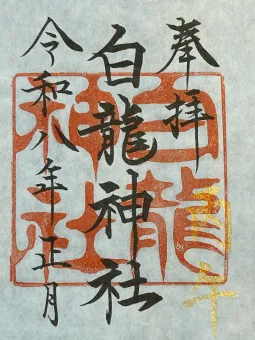 奉拝
白龍神社
令和八年正月
白龍
神社